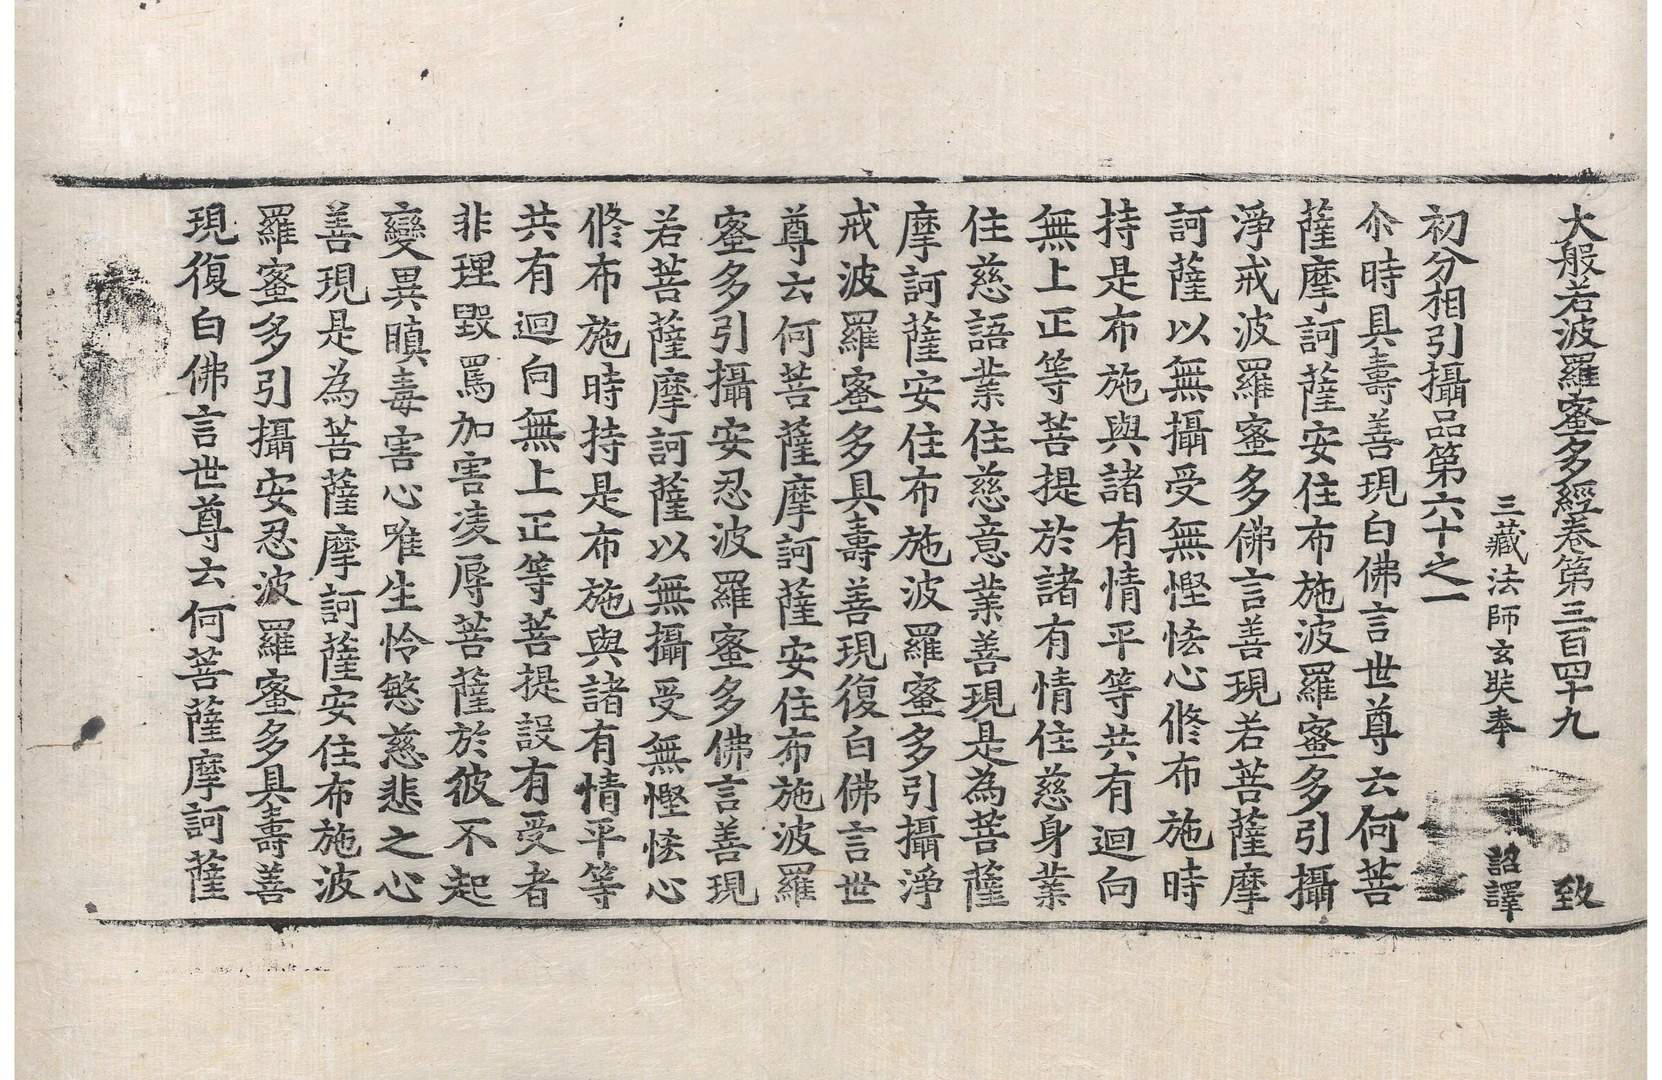 大般若波羅蜜多經卷第三百四十九 致
三藏法師玄奘奉 詔譯
初分相引攝品第六十之一
尒時具壽善現白佛言世尊云何菩
薩摩訶薩安住布施波羅蜜多引攝
淨戒波羅蜜多佛言善現若菩薩摩
訶薩以無攝受無慳悋心修布施時
持是布施與諸有情平等共有迴向
無上正等菩提於諸有情住慈身業
住慈語業住慈意業善現是為菩薩
摩訶薩安住布施波羅蜜多引攝淨
戒波羅蜜多具壽善現復白佛言世
尊云何菩薩摩訶薩安住布施波羅
蜜多引攝安忍波羅蜜多佛言善現
若菩薩摩訶薩以無攝受無慳悋心
修布施時持是布施與諸有情平等
共有迴向無上正等菩提設有受者
非理毀罵加害凌辱菩薩於彼不起
變異瞋毒害心唯生怜愍慈悲之心
善現是為菩薩摩訶薩安住布施波
羅蜜多引攝安忍波羅蜜多具壽善
現復白佛言世尊云何菩薩摩訶薩